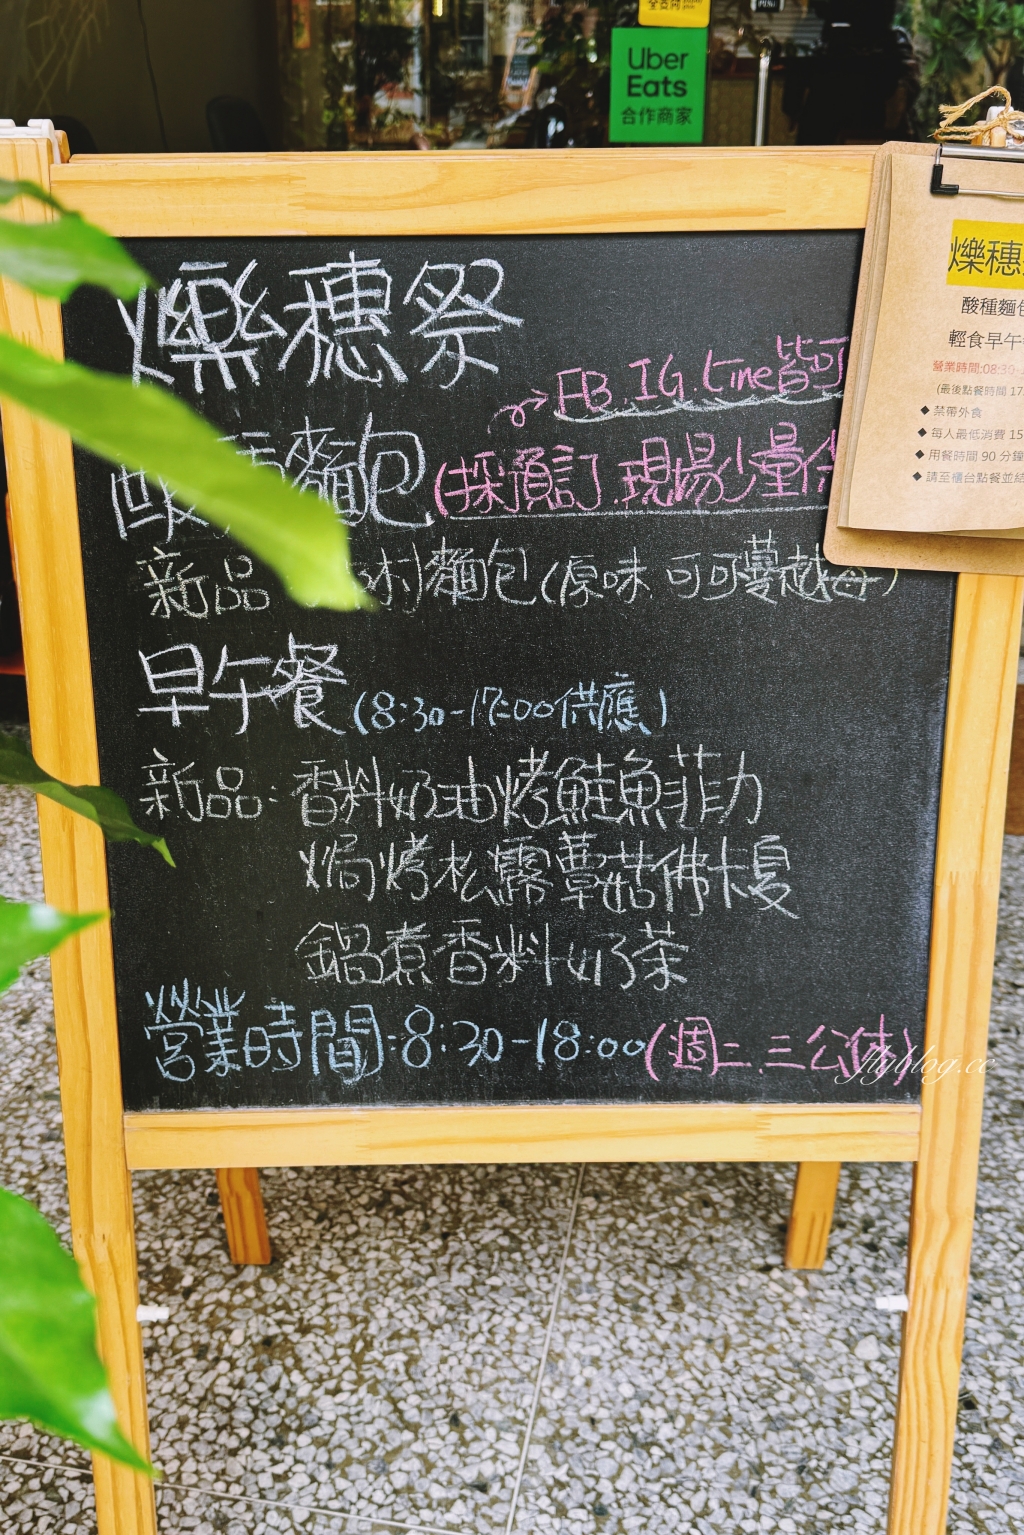 Uber
Eats
合作商家
爍穗祭
→FB.IG.Line皆可
麵包(採預訂.現場少量供
新品 村麵包(原味 可可蔓越莓)
早午餐(8:30-17:00供應)
新品:香料奶油烤鮭魚菲力
焗烤松露蕈菇佛卡夏
鍋煮香料奶茶
營業時間:8:30-18:00(週二.三公休)
爍穗
酸種麵包
輕食早午
營業時間:08:30-
(最後點餐時間 17
◆ 禁帶外食
◆ 每人最低消費 15
◆ 用餐時間 90 分鐘
◆ 請至櫃台點餐並結
flyblog.cc